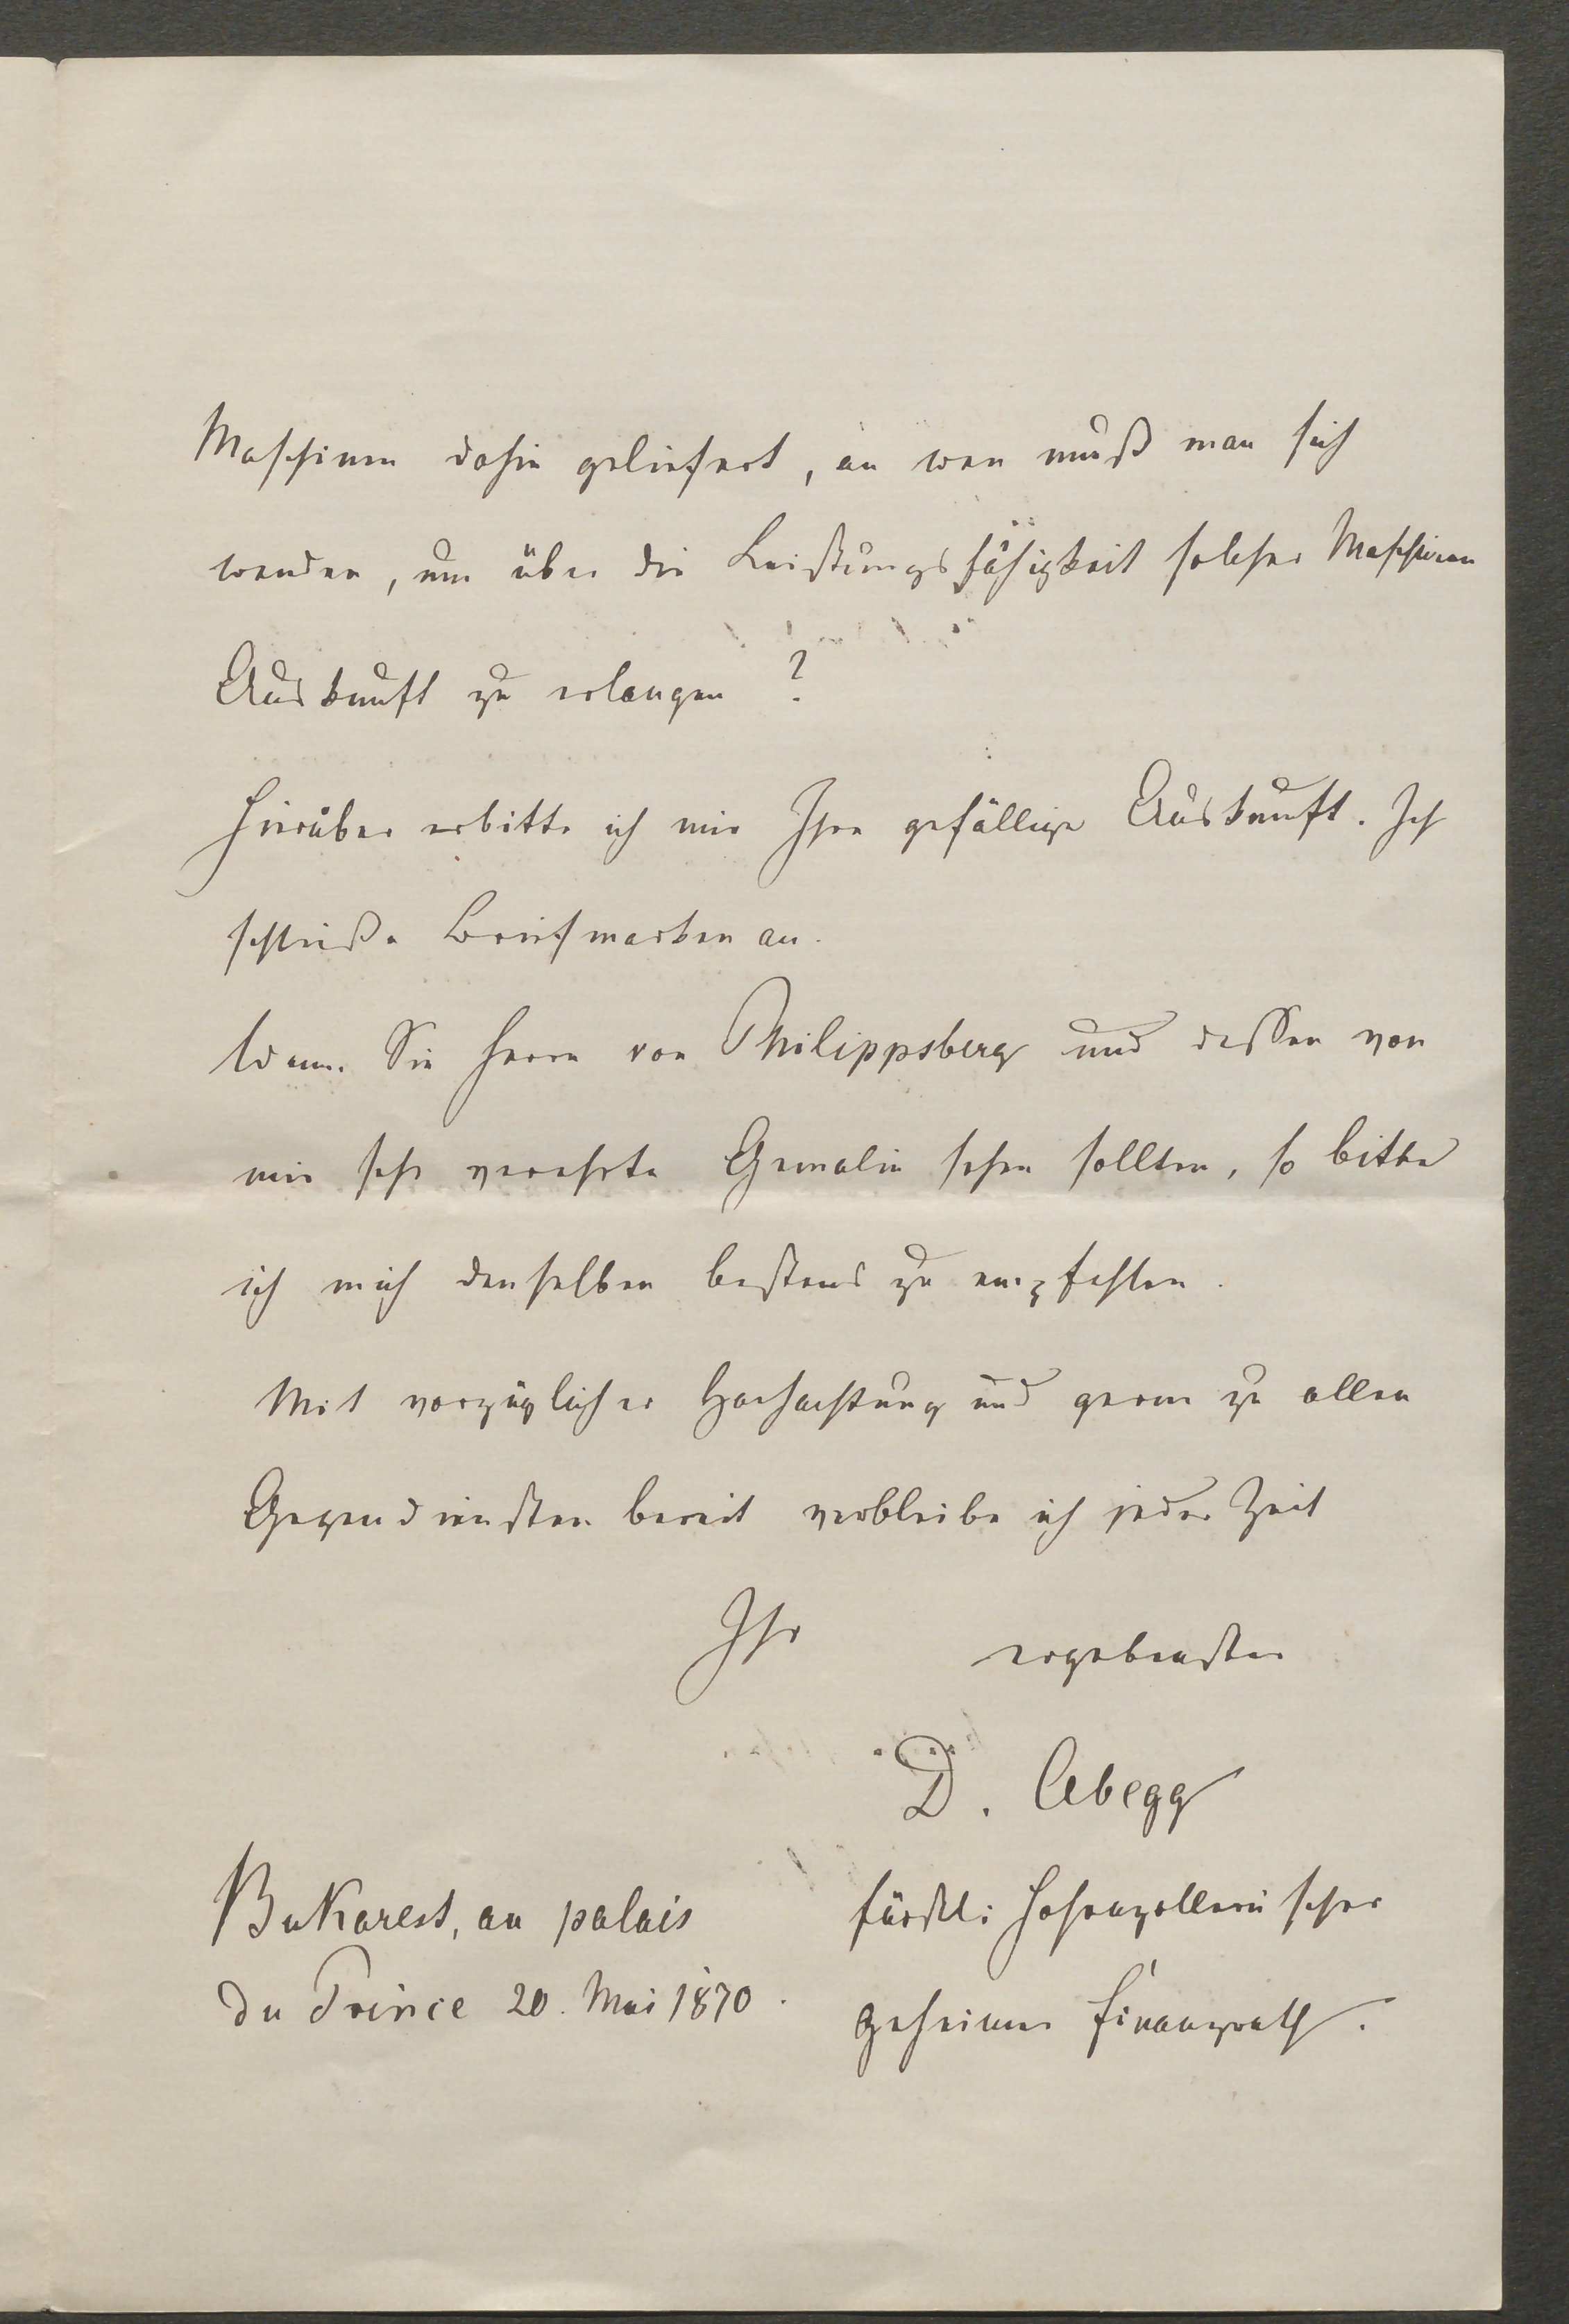 Maschinen dahin geliefert, an wen muß man sich
wenden, um über die Leistungsfähigkeit solcher Maschinen
Auskunft zu erlangen?
Hierüber erbitte ich mir Ihre gefällige Auskunft. Ich
schließe Briefmarken an.
Wenn Sie Herrn von Philippsberg und dessen von
mir sehr verehrte Gemalin sehen sollten, so bitte
ich mich denselben bestens zu empfehlen.
Mit vorzüglicher Hochachtung und gerne zu allen
Gegendiensten bereit verbleibe ich jeder Zeit
Ihr ergebenster
D. Abegg
fürstl: Hohenzollernischer
geheimer Finanzrath.
Bukarest, au palais
du Prince 20. Mai 1870.